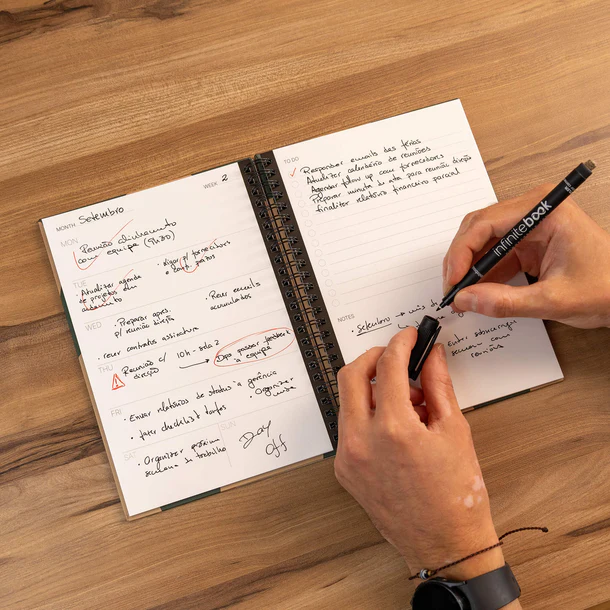 MONTH Setembro
WEEK 2
MON
Reunião alinhamento
com equipa (9h30)
TUE
• Atualizar agenda
de projetos em
• Ligar p/ fornecedores
e prazos
WED
• Preparar apres.
p/ reunião direção
• Rever emails
acumulados
• rever contratos assinatura
THU
Reunião c/ 10h - sala 2
direção
Dps passar feedback
à equipa
FRI
• Enviar relatórios de status à gerência
• fazer checklist tarefas
• Organizar
SAT
• Organizar próxima
semana de trabalho
SUN
Day
off
TO DO
Responder emails das férias
Atualizar calendário de reuniões
Agendar follow up com fornecedores
Preparar minuta da ata para reunião direção
finalizar relatório financeiro parcial
NOTES
• Setembro → mês d
semana com
reuniões
infinitebook